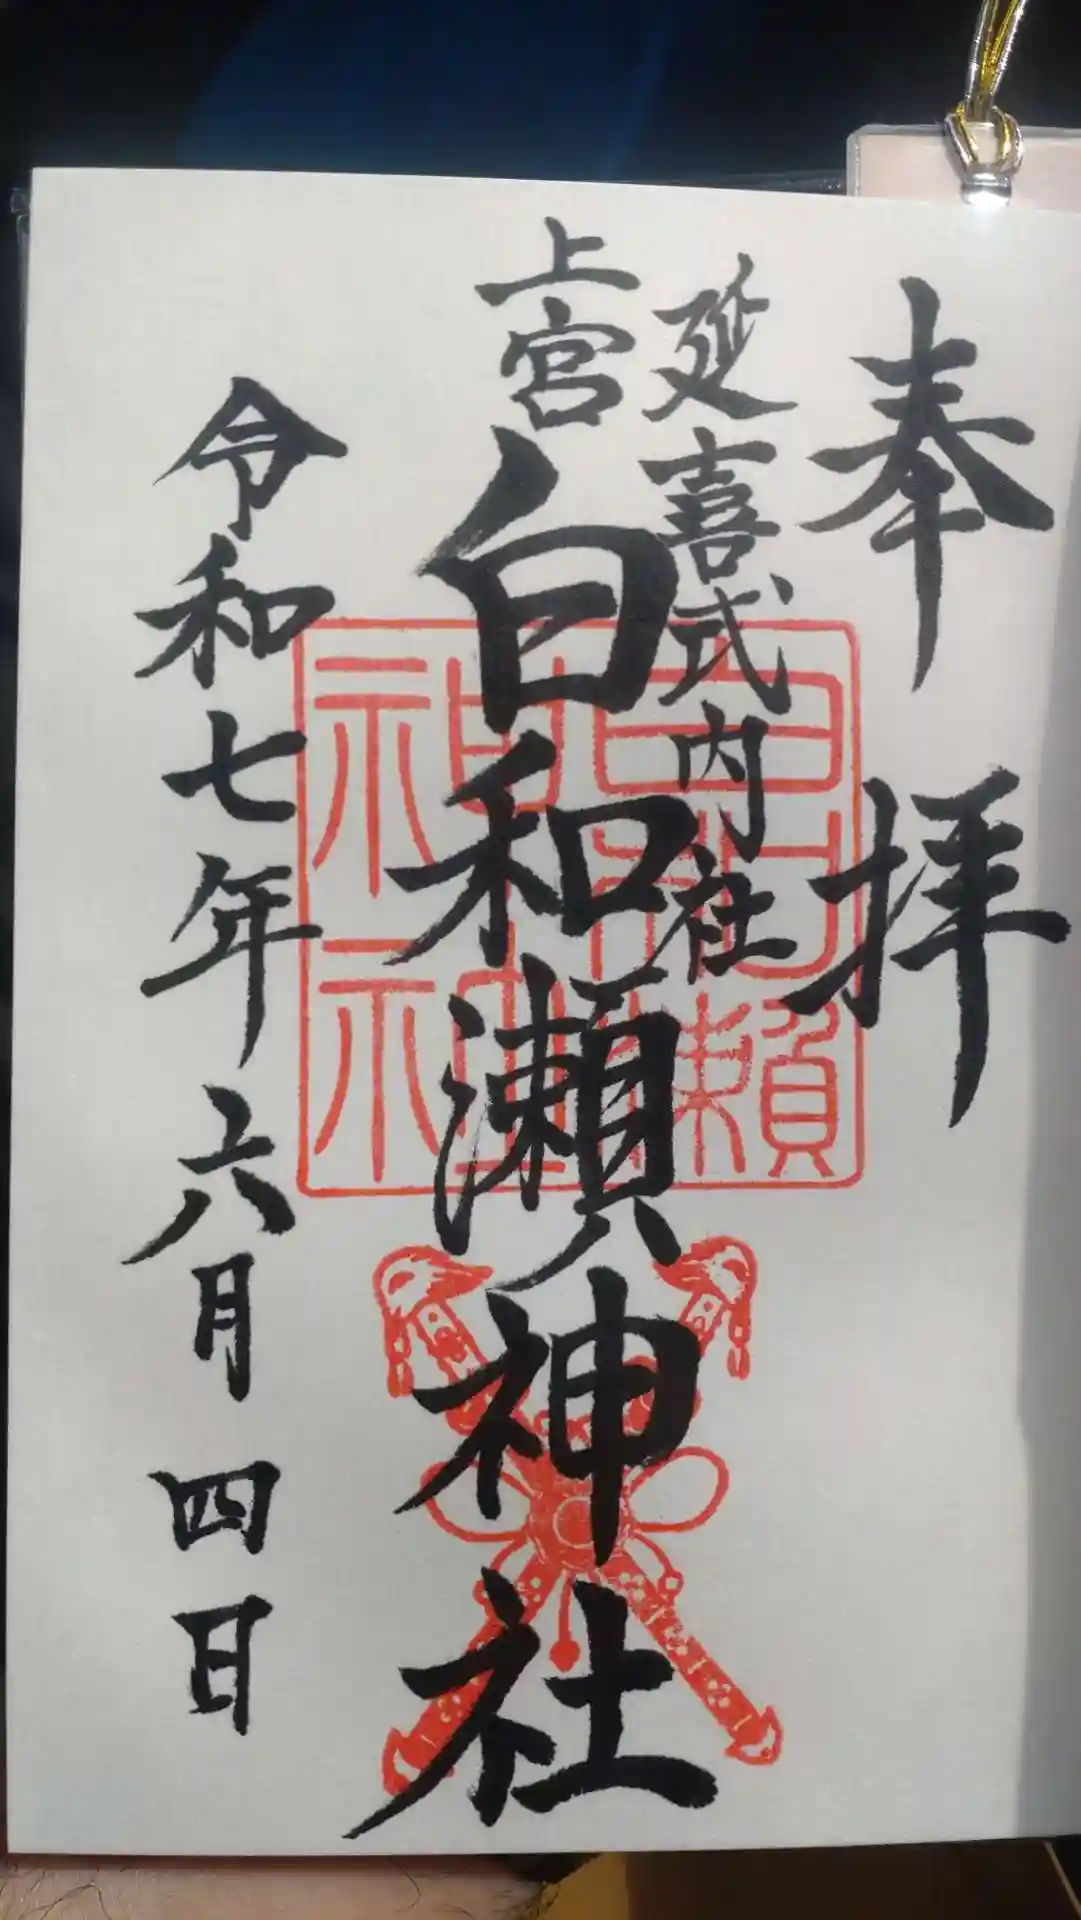 奉拝
延喜式内社
上宮
白和瀬神社
令和七年六月四日
白和瀬
神社